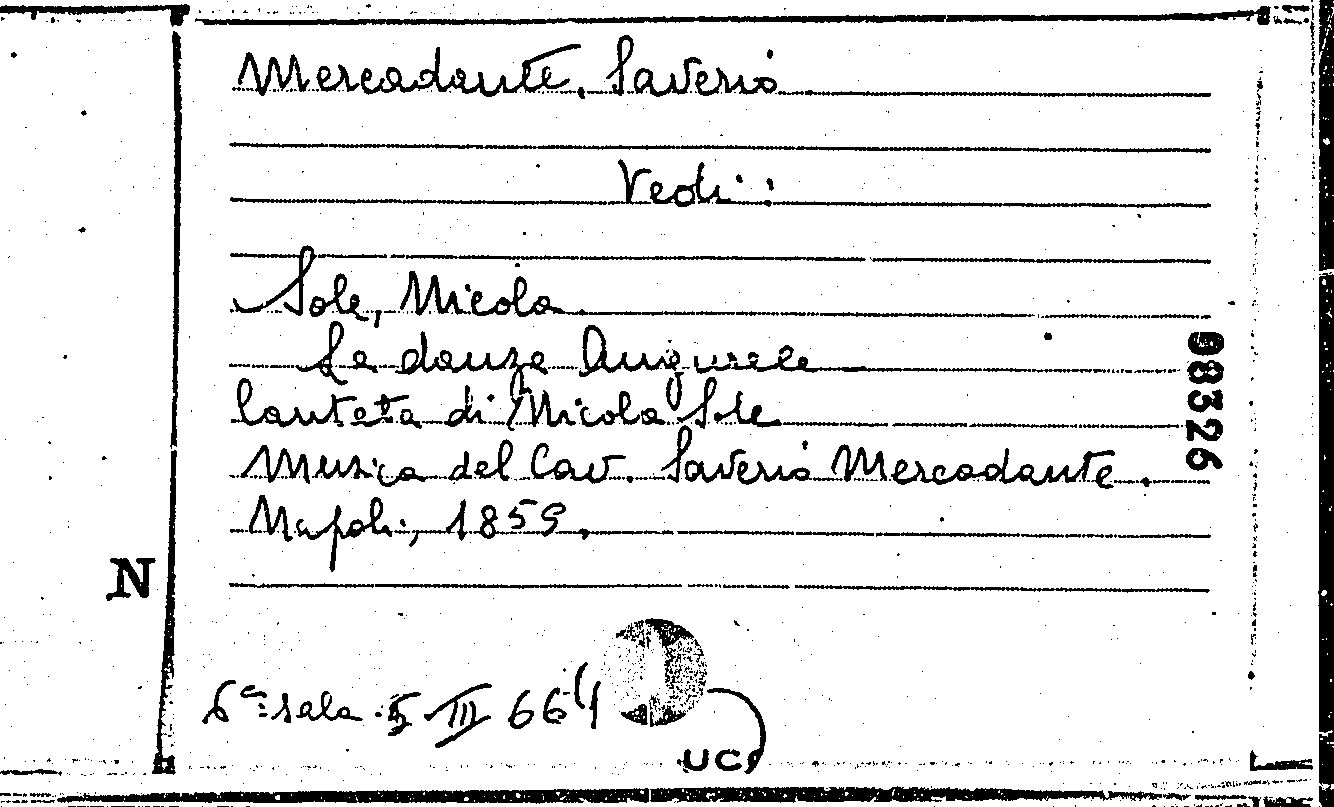 Mercadante, Saverio
Vedi:
Sole, Nicola
La danza Augurale
Cantata di Nicola Sole
Musica del Cav. Saverio Mercadante.
Napoli, 1859.
08326
N
6ª sala. 5 III 66
UC